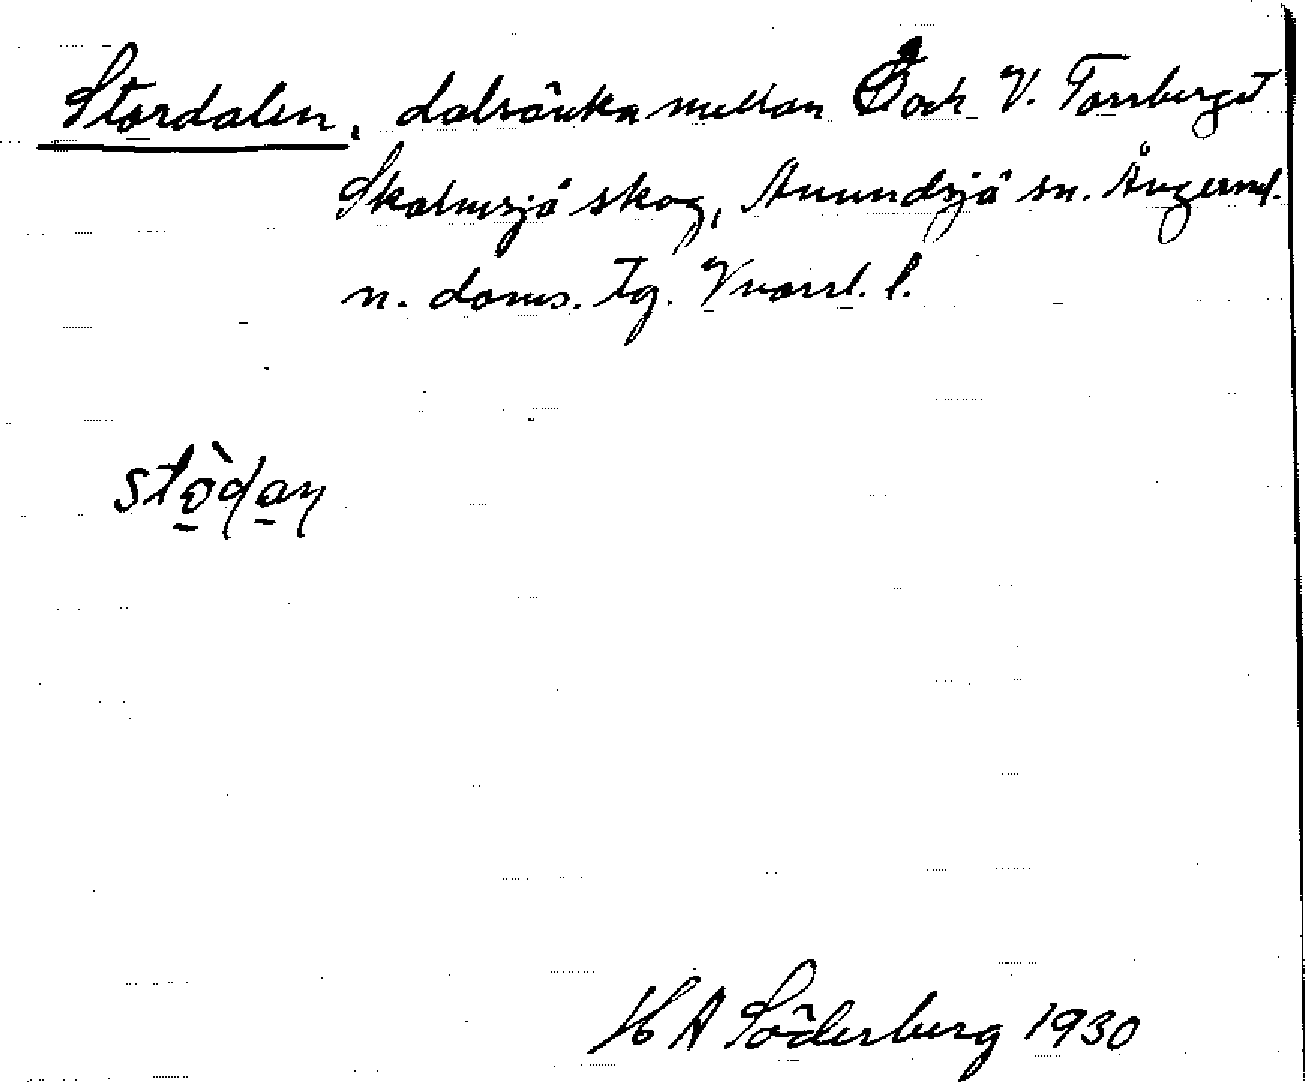 Stordalen, dalsänka mellan Ö och V. Torrberget
Skalmsjö skog, Anundsjö sn. Ångerml.
n. doms. tg. Vnorrl. l.
stò̱da̱ŋ
K A Söderberg 1930